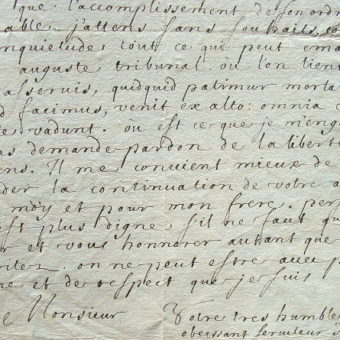 que l'accomplissement de son ordr
able. j'attens sans souhaits, et
inquietude, tout ce qui peut ema
auguste tribunal. ou l'on tient
asservis, quidquid patimur morta
d facimus, venit ex alto: omnia c
e vadunt. ou est ce que je m'eng
as demande pardon de la liberté
ens. Il me convient mieux de
der la continuation de votre a
moy et pour mon frere. per
est plus digne, s'il ne faut qu
r et vous honnorer autant que
riter. on ne peut estre avec p
ne et de respect que je suis
e Monsieur
Votre tres humble
obeissant serviteur